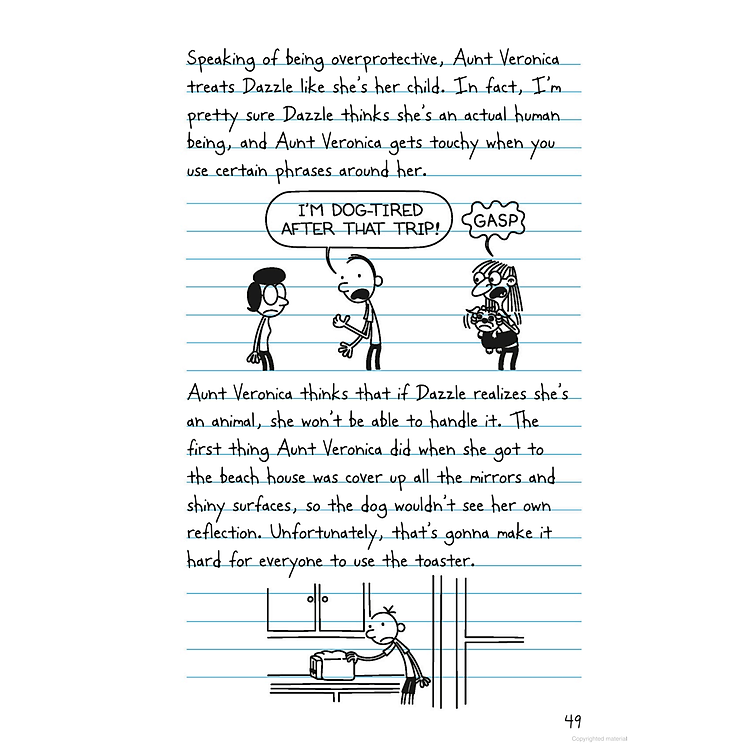 Speaking of being overprotective, Aunt Veronica
treats Dazzle like she's her child. In fact, I'm
pretty sure Dazzle thinks she's an actual human
being, and Aunt Veronica gets touchy when you
use certain phrases around her.
I'M DOG-TIRED
AFTER THAT TRIP!
GASP
Aunt Veronica thinks that if Dazzle realizes she's
an animal, she won't be able to handle it. The
first thing Aunt Veronica did when she got to
the beach house was cover up all the mirrors and
shiny surfaces, so the dog wouldn't see her own
reflection. Unfortunately, that's gonna make it
hard for everyone to use the toaster.
49
Copyrighted material